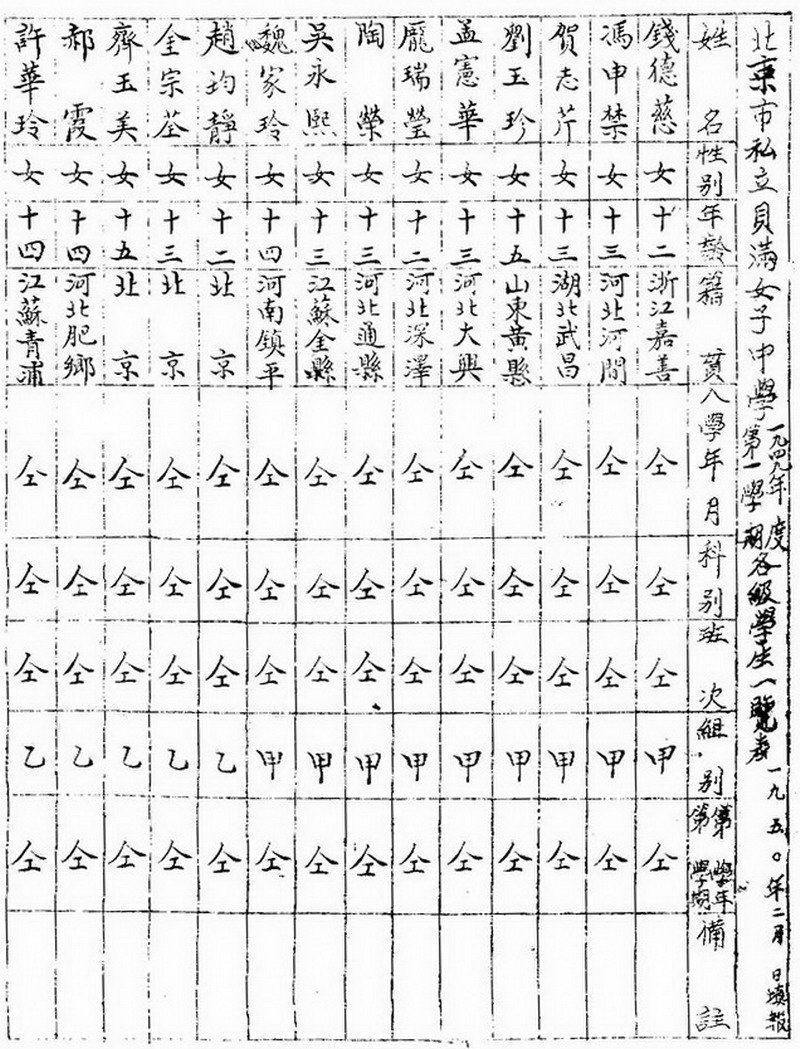 北京市私立貝滿女子中學一九四九年度第一學期各級學生一覽表 一九五〇年二月 日填報
姓名 性別 年齡 籍貫 入學年月 科別 班次 組別 第 學年第 學期 備註
錢德慈 女 十二 浙江嘉善 仝 仝 仝 甲 仝
馮申禁 女 十三 河北河間 仝 仝 仝 甲 仝
賀志芹 女 十三 湖北武昌 仝 仝 仝 甲 仝
劉玉珍 女 十五 山東黃縣 仝 仝 仝 甲 仝
孟憲華 女 十三 河北大興 仝 仝 仝 甲 仝
龐瑞瑩 女 十二 河北深澤 仝 仝 仝 甲 仝
陶榮 女 十三 河北通縣 仝 仝 仝 甲 仝
吳永熙 女 十三 江蘇金縣 仝 仝 仝 甲 仝
魏家玲 女 十四 河南鎮平 仝 仝 仝 甲 仝
趙均靜 女 十二 北京 仝 仝 仝 乙 仝
金宗荃 女 十三 北京 仝 仝 仝 乙 仝
齊玉美 女 十五 北京 仝 仝 仝 乙 仝
郝霞 女 十四 河北肥鄉 仝 仝 仝 乙 仝
許華玲 女 十四 江蘇青浦 仝 仝 仝 乙 仝